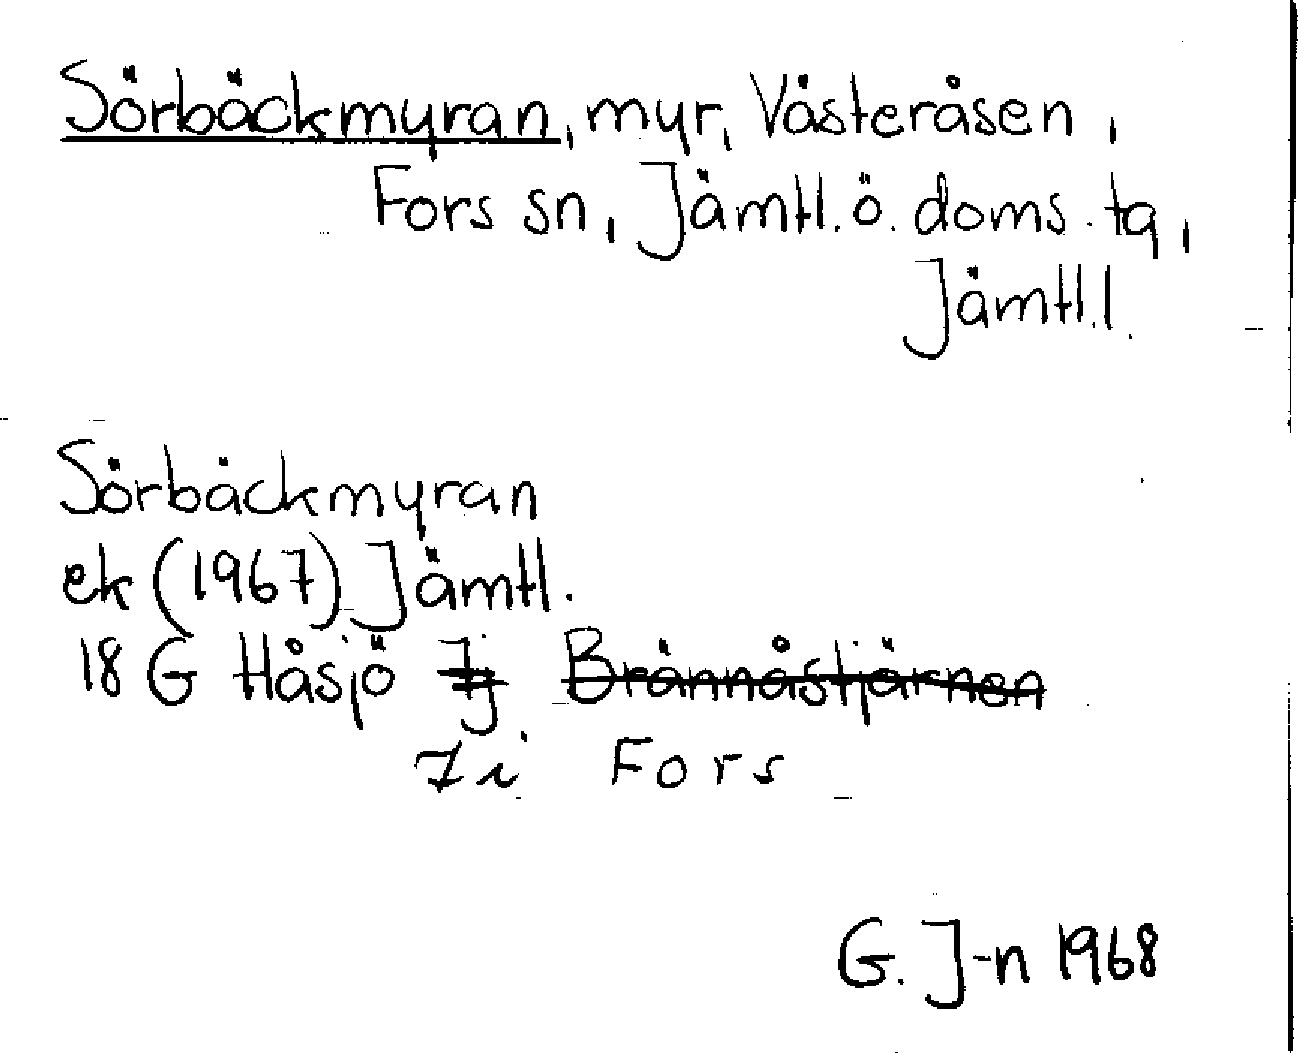 Sörbäckmyran, myr, Västeråsen,
Fors sn, Jämtl. ö. doms. tg,
Jämtl.l.
Sörbäckmyran
ek (1967) Jämtl.
18 G Håsjö 7j Brännåstjärnen
7i Fors
G. J-n 1968